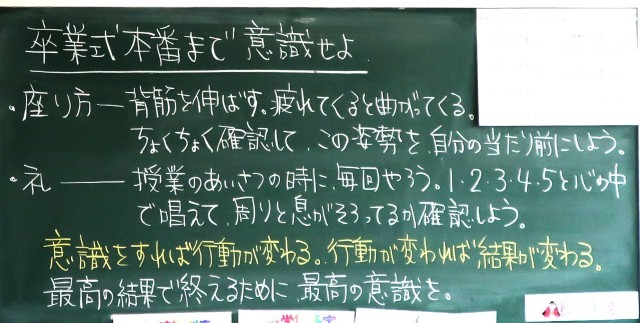 卒業式本番まで意識せよ
・座り方―背筋を伸ばす。疲れてくると曲がってくる。
ちょくちょく確認して、この姿勢を、自分の当たり前にしよう。
・礼―授業のあいさつの時に、毎回やろう。1・2・3・4・5と心の中
で唱えて、周りと息がそろってるか確認しよう。
意識をすれば行動が変わる。行動が変われば結果が変わる。
最高の結果で終えるために、最高の意識を。